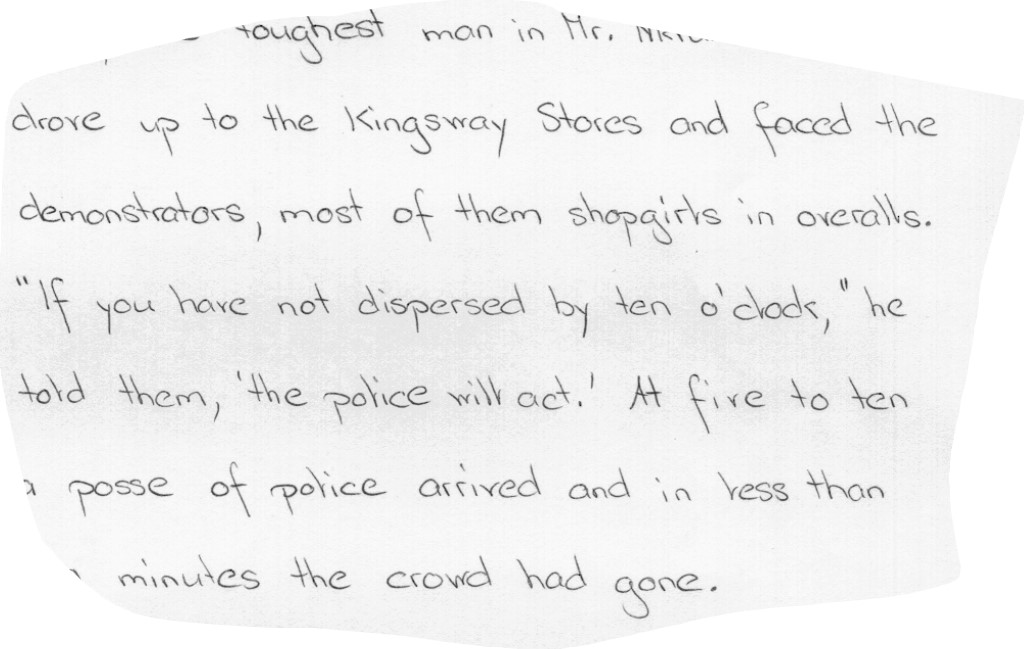 toughest man in Mr.
drove up to the Kingsway Stores and faced the
demonstrators, most of them shopgirls in overalls.
"If you have not dispersed by ten o'clock," he
told them, 'the police will act.' At five to ten
a posse of police arrived and in less than
minutes the crowd had gone.